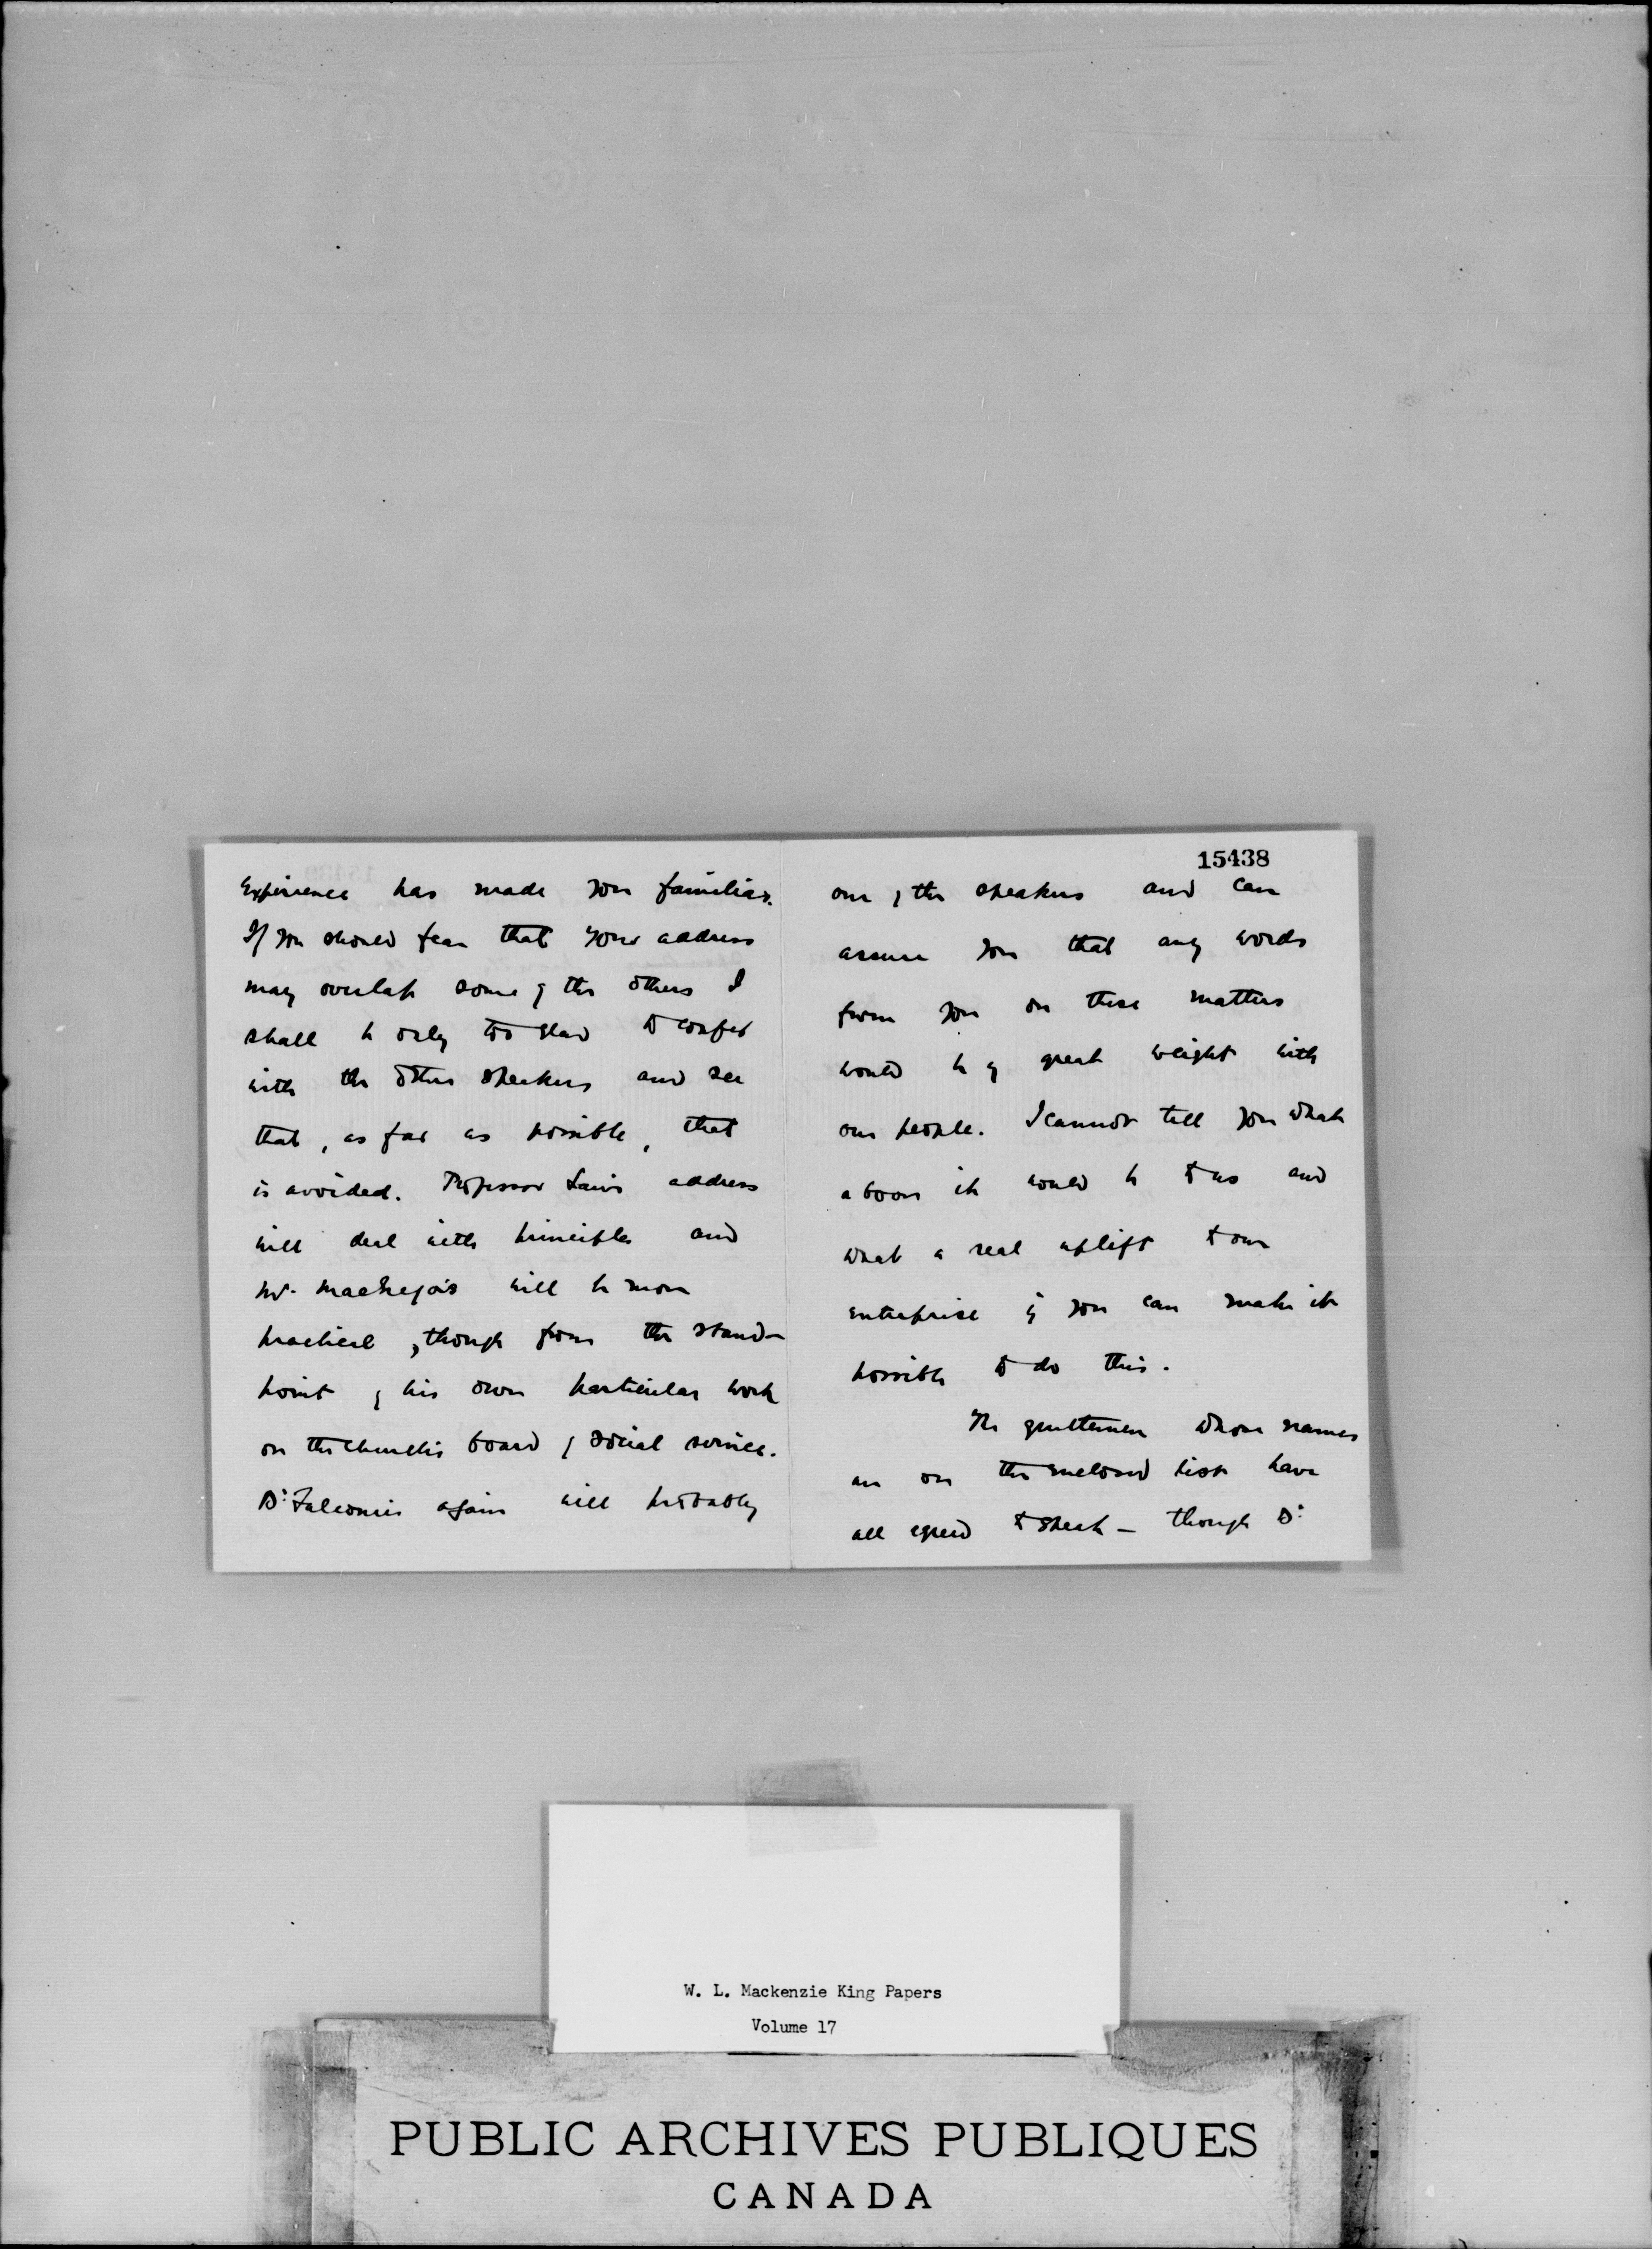 experience has made you familiar.
If you should fear that your address
may overlap some of the others I
shall be only too glad to confer
with the other speakers and see
that, as far as possible, that
is avoided. Professor Law's address
will deal with principles and
Mr. MacGregor's will be more
practical, though from the stand-
point of his own particular work
on the Church's board of social service.
Dr. Falconer's again will probably
15438
one of the speakers and can
assure you that any words
from you on these matters
would be of great weight with
our people. I cannot tell you what
a boon it would be to us and
what a real uplift to our
enterprise if you can make it
possible to do this.
The gentlemen whose names
are on the enclosed list have
all agreed to speak - though Dr.
W. L. Mackenzie King Papers
Volume 17
PUBLIC ARCHIVES PUBLIQUES
CANADA